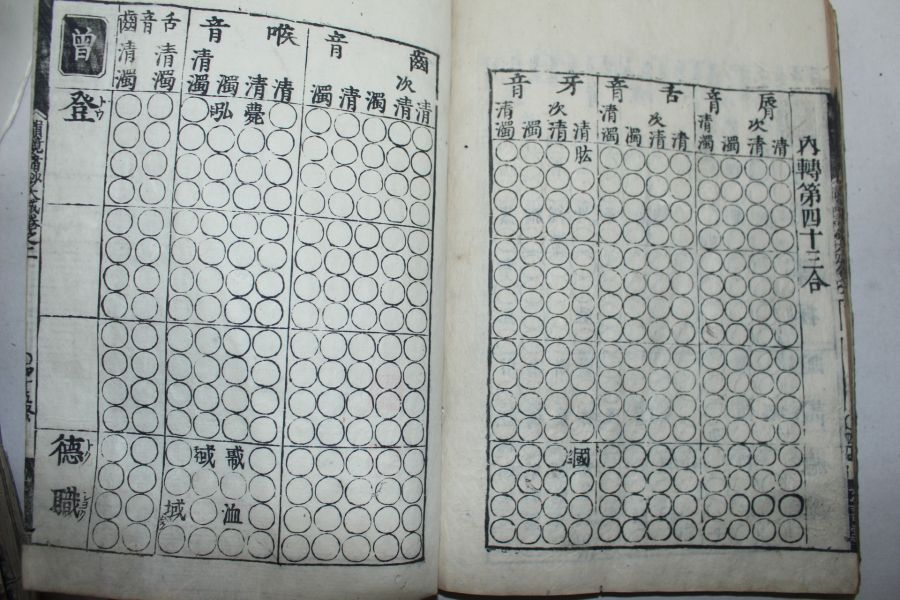 内轉第四十三合
脣 音
清 次清 濁 清濁
舌 音
清 次清 濁 清濁
牙 音
清 次清 濁 清濁
肱
國
齒 音
清 次清 濁 清 濁
喉 音
清 清 濁 清濁
薨 吰
域
洫
舌 音 齒
清濁 清濁
曾
登 トウ
德 トク
職